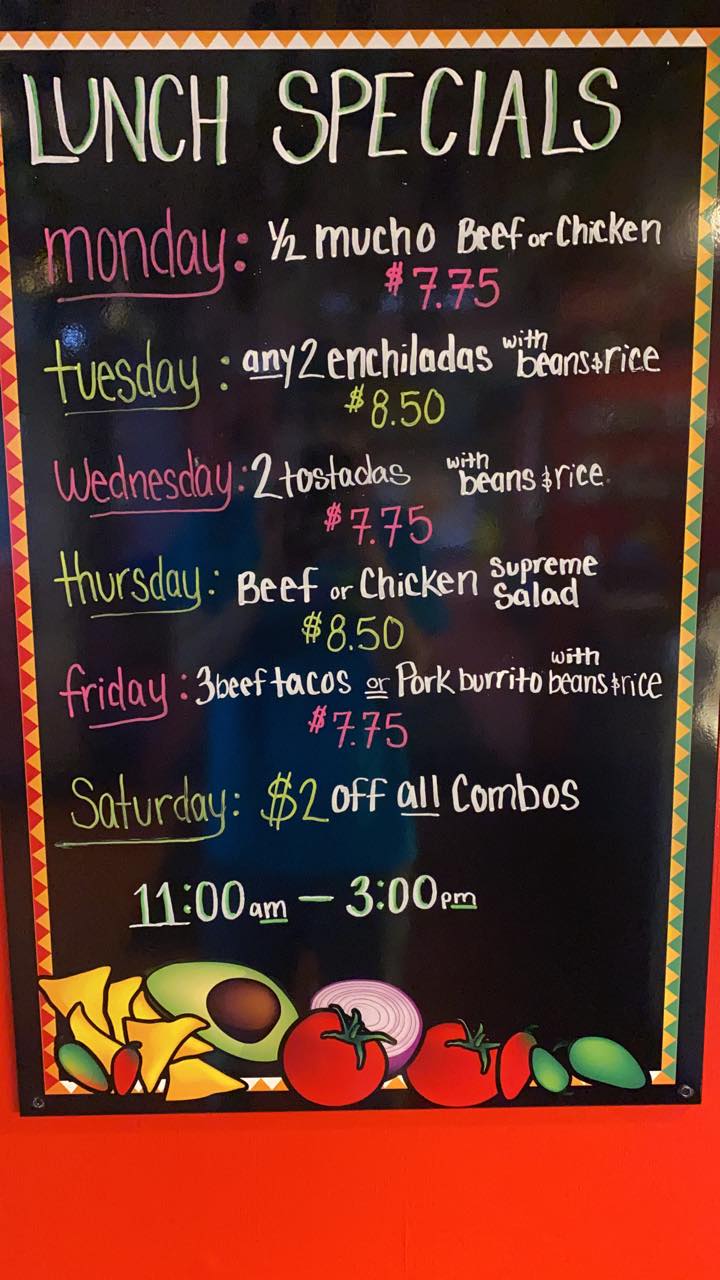 LUNCH SPECIALS
monday: ½ mucho Beef or Chicken
$7.75
tuesday: any 2 enchiladas with beans & rice
$8.50
Wednesday: 2 tostadas with beans & rice
$7.75
thursday: Beef or Chicken Supreme Salad
$8.50
friday: 3 beef tacos or Pork burrito with beans & rice
$7.75
Saturday: $2 off all Combos
11:00am - 3:00pm